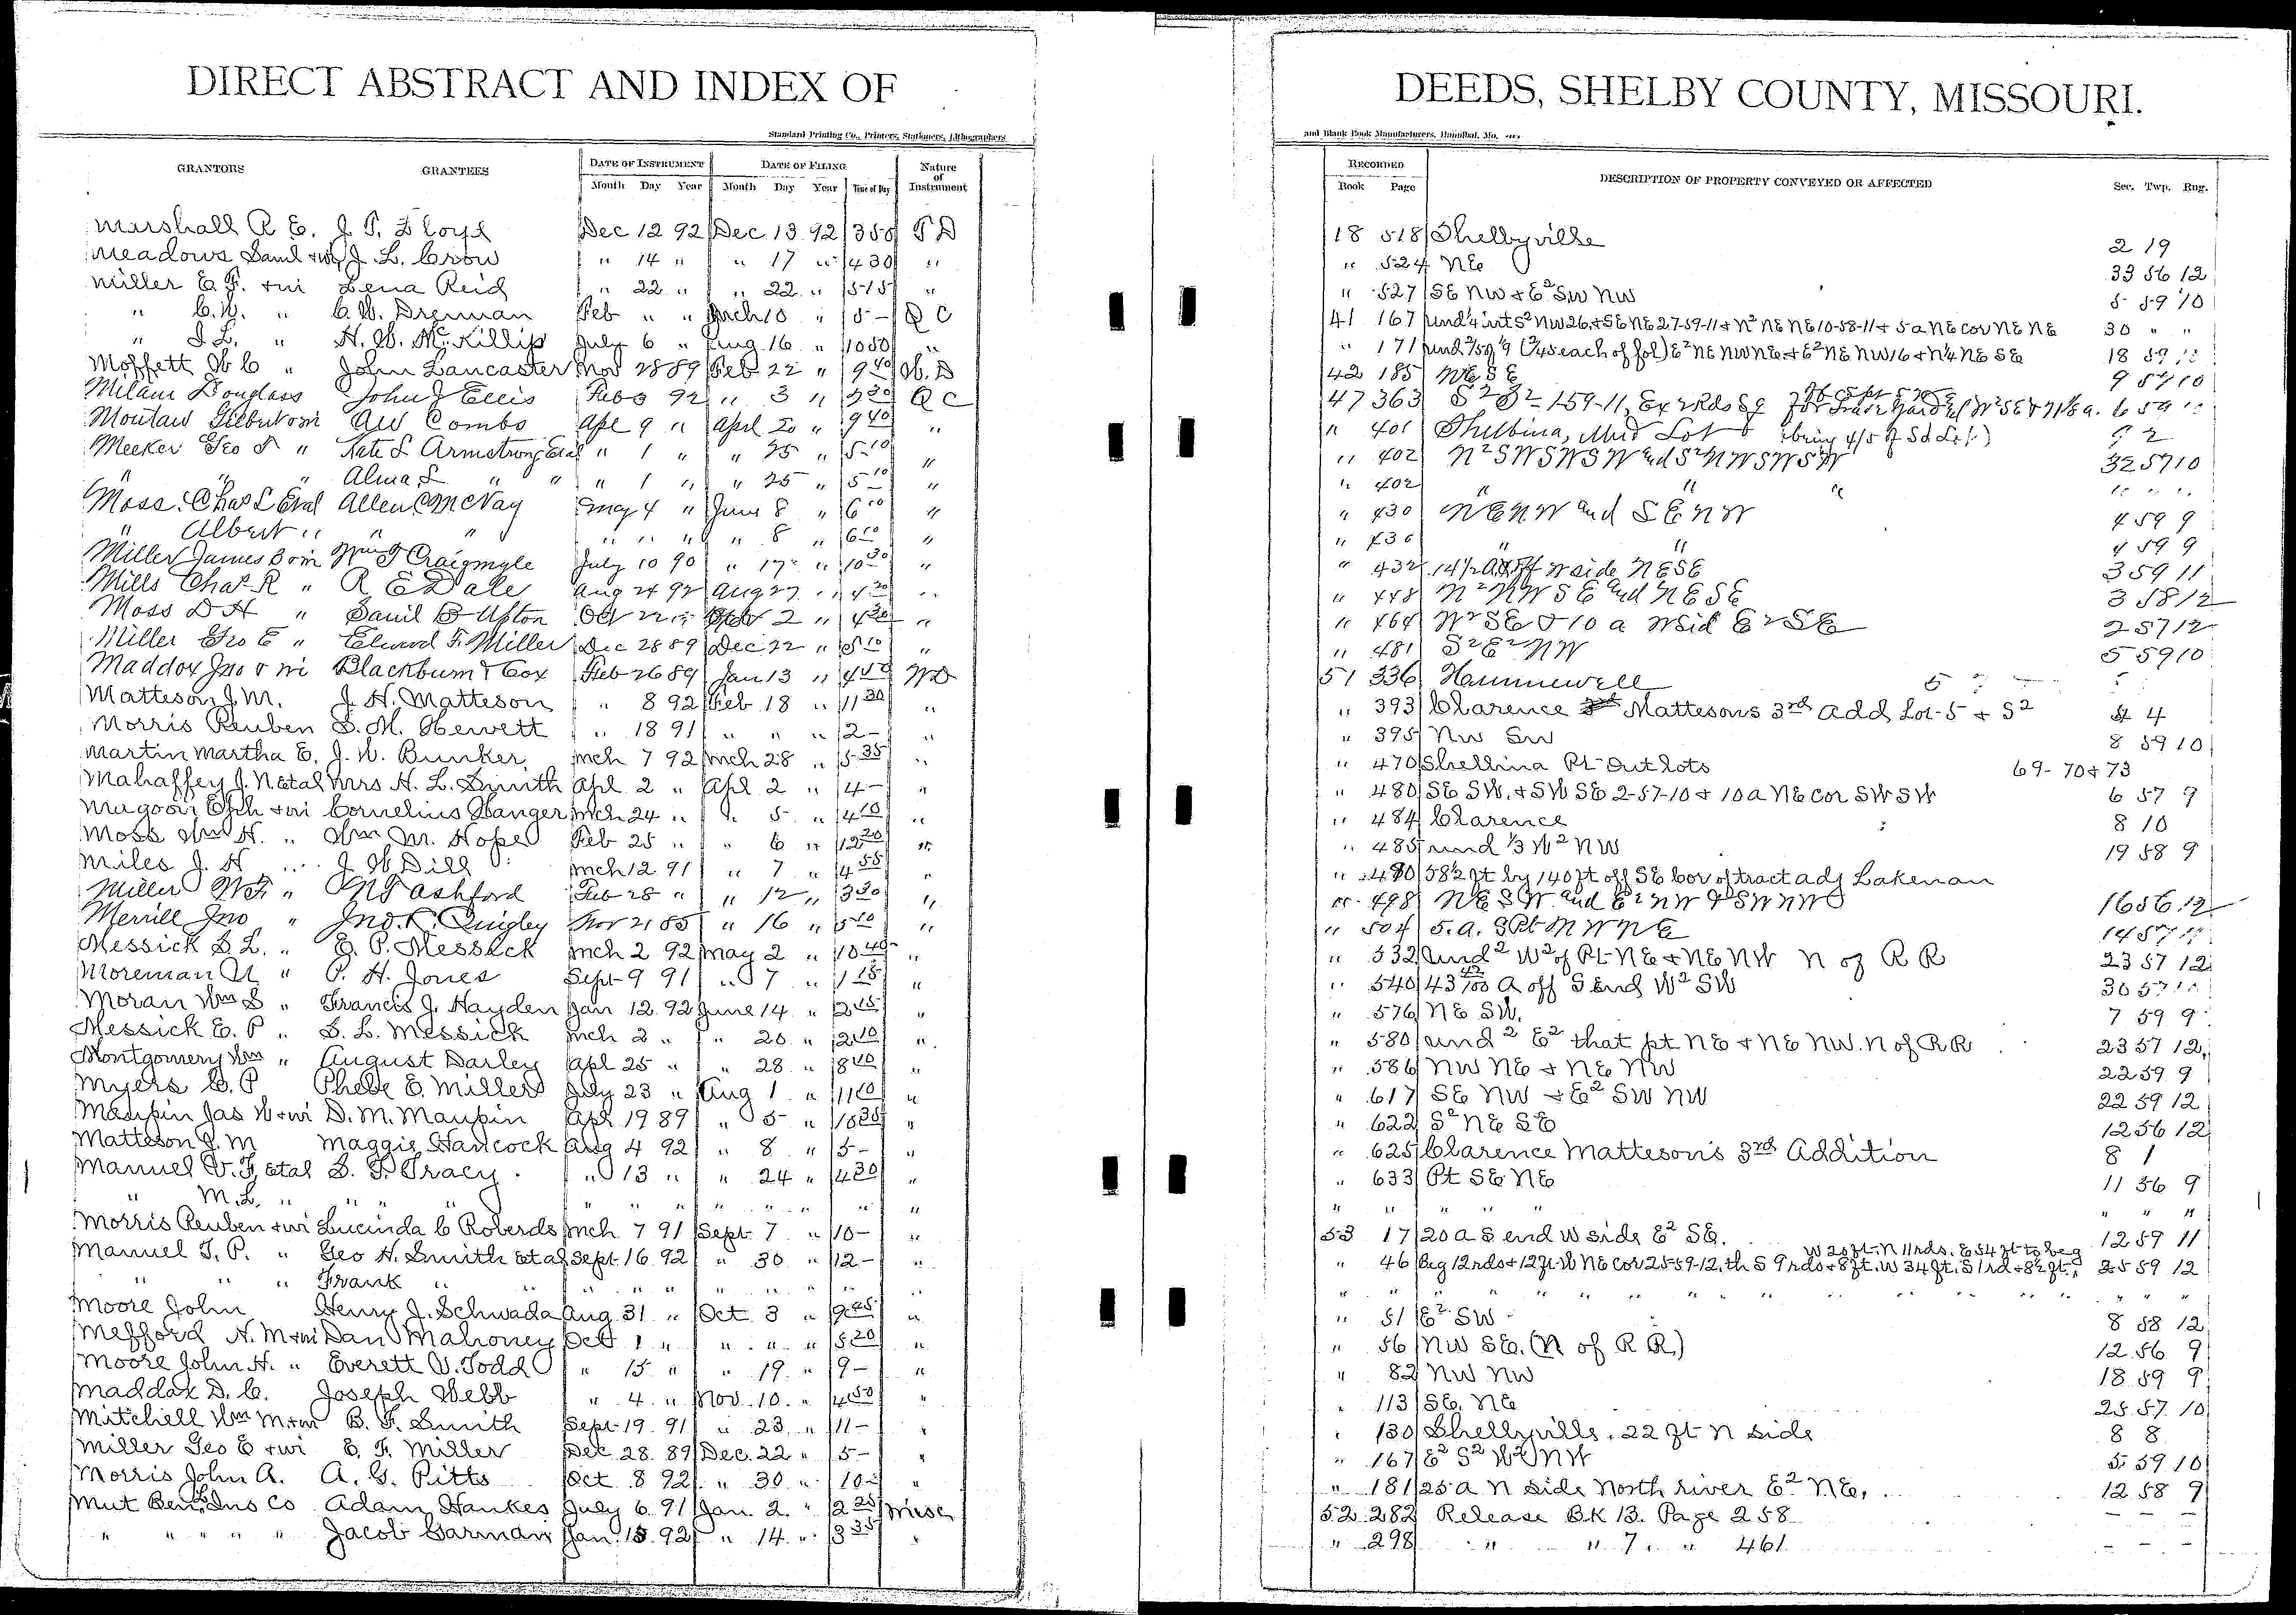 DIRECT ABSTRACT AND INDEX OF
Standard Printing Co., Printers, Stationers, Lithographers
GRANTORS GRANTEES DATE OF INSTRUMENT DATE OF FILING Nature of Instrument
Month Day Year Month Day Year Time of Day
Marshall R E. J. P. Floyd Dec 12 92 Dec. 13 92 3 50 T D
Meadows Saml + wi J. L. Crow " 14 " " 17 " 4 30 "
Miller E. F. + wi Lena Reid " 22 " " 22 " 5 15 "
" C. W. " C. W. Drennan Feb " " Mch 10 " 5 - Q C
" I L. " H. W. McKillip July 6 " Aug. 16 " 10 50 "
Moffett W C " John Lancaster Nov 28 89 Feb 22 " 9 40 W. D
Milam Douglass John J Ellis Feb 3 92 " 3 " 2 30 Q C
Moutaw Gilbert + wi A W Combs Apl 9 " April 20 " 9 40 "
Meeker Geo T " Kate L Armstrong Etal " 1 " " 25 " 5 10 "
" " " Alma L " " " 1 " " 25 " 5 10 "
Moss Chas L Etal Allen C McVay May 4 " June 8 " 6 10 "
" Albert " " " " " " " 8 " 6 10 "
Miller James B + wi Wm T Craigmyle July 10 90 " 17 " 10 30 "
Mills Chas R " R E Dale Aug 24 92 Aug 27 " 4 20 "
Moss D H " Samil B Upton Oct 22 " 2 " 4 30 "
Miller Geo E " Elwood F. Miller Dec 28 89 Dec 22 " 5 10 "
Maddox Jno + wi Blackburn & Cox Feb 26 89 Jan 13 " 4 40 W D
Matteson J. M. J. H. Matteson " 8 92 Feb 18 " 11 30 "
Morris Reuben S. M. Hewett " 18 91 " " " 2 - "
Martin Martha E. J. W. Bunker Mch 7 92 Mch 28 " 5 35 "
Mahaffey J. N etal Mrs H. L. Smith Apl 2 " Apl 2 " 4 - "
Magoon Eph + wi Cornelius Hanger Mch 24 " " 5 " 4 10 "
Moss Wm H. " Wm M. Hoper Feb 25 " " 6 " 12 20 "
Miles J. H " J W Dill Mch 12 91 " 7 " 4 55 "
Miller W F " M T Ashford Feb 28 " " 12 " 3 30 "
Merrill Jno " Jno. R. Quigley Nov 21 85 " 16 " 5 10 "
Messick S. L. " E. P. Messick Mch 2 92 May 2 " 10 40 "
Moreman U " P. H. Jones Sept 9 91 " 7 " 1 15 "
Moran Wm S " Francis J. Hayden Jan 12 92 June 14 " 2 15 "
Messick E. P " S. L. Messick Mch 2 " " 20 " 2 10 "
Montgomery Wm " August Darley Apl 25 " " 28 " 8 40 "
Myers C. P Phebe E. Miller July 23 " Aug 1 " 11 10 "
Maupin Jas W + wi D. M. Maupin Apr 19 89 " 5 " 10 35 "
Matteson J. M Maggie Hancock Aug 4 92 " 8 " 5 - "
Manuel V. F. etal S. P. Tracy " 13 " " 24 " 4 30 "
" M. L. " " " " " " " " " " " "
Morris Reuben + wi Lucinda C Roberds Mch 7 91 Sept 7 " 10 - "
Manuel T. P. " Geo H. Smith et al Sept 16 92 " 30 " 12 - "
" " " Frank " " " " " " " "
Moore John Henry J. Schwada Aug. 31 " Oct 3 " 9 45 "
Mefford N. M + wi Dan Mahoney Oct 1 " " " " 5 20 "
Moore John H. " Everett V. Todd " 15 " " 19 " 9 - "
Maddox D. C. Joseph Webb " 4 " Nov 10 " 4 50 "
Mitchell Wm M + wi B. F. Smith Sept 19 91 " 23 " 11 - "
Miller Geo E + wi E. F. Miller Dec 28 89 Dec. 22 " 5 - "
Morris John A. A. G. Pitts Oct. 8 92 " 30 " 10 - "
Mut Ben. L Ins Co Adam Hankes July 6 91 Jan. 2 " 2 25 Misc
" " " " Jacob Garman Jan. 15 92 " 14 " 3 35 "
DEEDS, SHELBY COUNTY, MISSOURI.
and Blank Book Manufacturers, Hannibal, Mo.
RECORDED DESCRIPTION OF PROPERTY CONVEYED OR AFFECTED Sec. Twp. Rng.
Book Page
18 518 Shelbyville 2 19
" 524 NE 33 56 12
" 527 SE NW + E2 SW NW 5 59 10
41 167 und 1/4 int S2 NW 26, + SE NE 27-59-11 + N2 NE NE 10-58-11 + 5 a NE cor NE NE 30 " "
" 171 E2 NE NW NE + E2 NE NW 16 + N1/4 NE SE 18 59
42 185 NE SE 9 57 10
47 363 1-59-11, Ex 2 Rds Sq 6 59
" 401 Shelbina, Mid Lot 6 (being 4/5 of Sd Lot) 2
" 402 N2 SW SW SW and S2 NW SW SW 32 57 10
" 402 " " " " " "
" 430 NE NW and SE NW 4 59 9
" 430 " " 4 59 9
" 432 14 1/2 a off W side NE SE 35 9 11
" 448 N2 NW SE and NE SE 3 58 12
" 464 W2 SE + 10 a W sid E2 SE 2 57 12
" 481 S2 E2 NW 5 59 10
51 336 Hunnewell 5
" 393 Clarence Mattesons 3rd Add Lot 5 + S2 4
" 395 NW SW 8 59 10
" 470 Shelbina Pt Outlots 69-70 + 73
" 480 SE SW. + SW SE 2-57-10 + 10 a NE cor SW SW 6 57 9
" 484 Clarence 8 10
" 485 und 1/3 W2 NW 19 58 9
" 490 58 1/2 ft by 140 ft off SE cor of tract adj Lakenan
" 498 NE SW and E2 NW + SW NW 16 56 12
" 504 5. a. S Pt NW NE 14 57 11
" 532 und 2 W2 of Pt NE + NE NW N of R R 23 57 12
" 540 43 42/100 a off S end W2 SW 30 57
" 576 NE SW. 7 59 9
" 580 und 2 E2 that pt NE + NE NW. N of R R 23 57 12
" 586 NW NE + NE NW 22 59 9
" 617 SE NW + E2 SW NW 22 59 12
" 622 S2 NE SE 12 56 12
" 625 Clarence Matteson's 3rd Addition 8 1
" 633 Pt SE NE 11 56 9
" " " " " " " " "
53 17 20 a S end W side E2 SE. 12 59 11
W 20 ft. N 11 rds. E 54 ft to beg
" 46 Beg 12 rds + 12 ft W NE cor 25-59-12, th S 9 rds + 8 ft. W 34 ft. S 1 rd + 8 1/2 ft. 25 59 12
" " " " " " " " " " " " " "
" 51 E2 SW 8 58 12
" 56 NW SE. (N of R R.) 12 56 9
" 82 NW NW 18 59 9
" 113 SE. NE 25 57 10
" 130 Shelbyville. 22 ft N side 8 8
" 167 E2 S2 W2 NW 5 59 10
" 181 25 a N side North river E2 NE. 12 58 9
52 282 Release BK 13. Page 258 - - -
" 298 " " 7 " 461 - - -